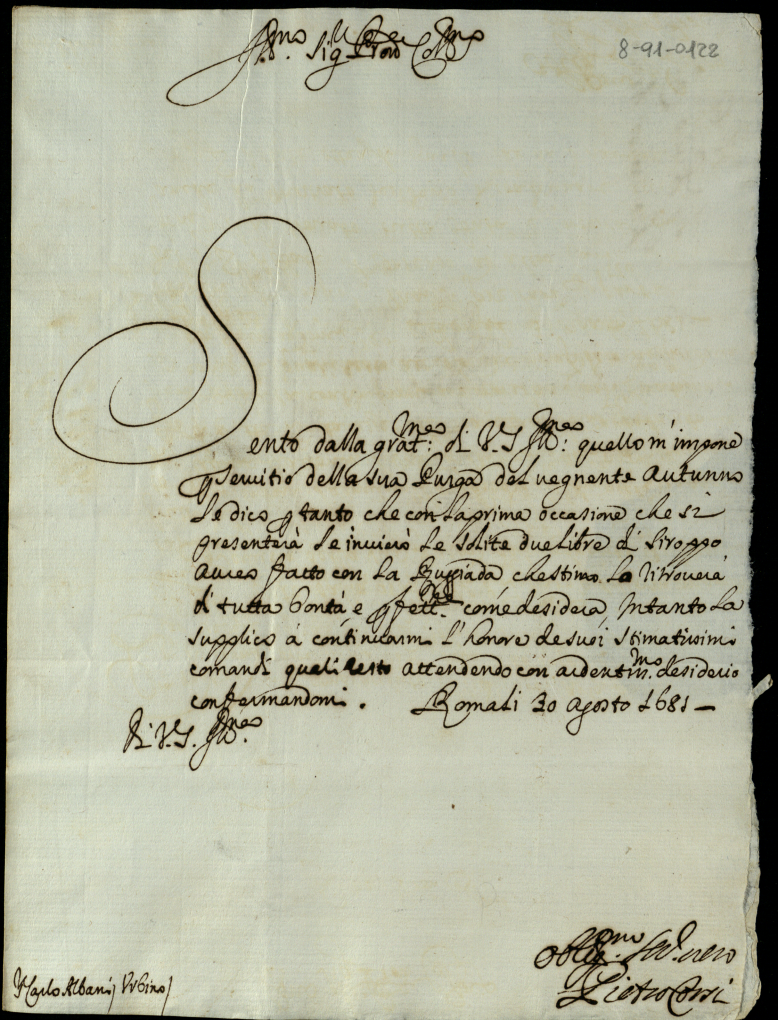 Ill.mo Sig.r e Pron Coll.mo
8-91-0122
Sento dalla grat.ma di V.S. Ill.ma: quello m'impone
p servitio della sua Purga del vegnente Autunno
Le dico p tanto che con la prima occasione che si
presenterà Le invierò Le solite due Libre di Siroppo
Aureo fatto con La Rugiada che stimo Lo ritroverà
di tutta bontà e pfett.ne come desidera, Intanto La
supplico à continuarmi l'honore de suoi stimatissimi
comandi quali resto attendendo con ardentis.mo desiderio
confermandomi. Roma li 30 Agosto 1681 —
Di V.S. Ill.ma
Oblig.mo Ser.r vero
Pietro Corsi
Carlo Albani / Urbino /